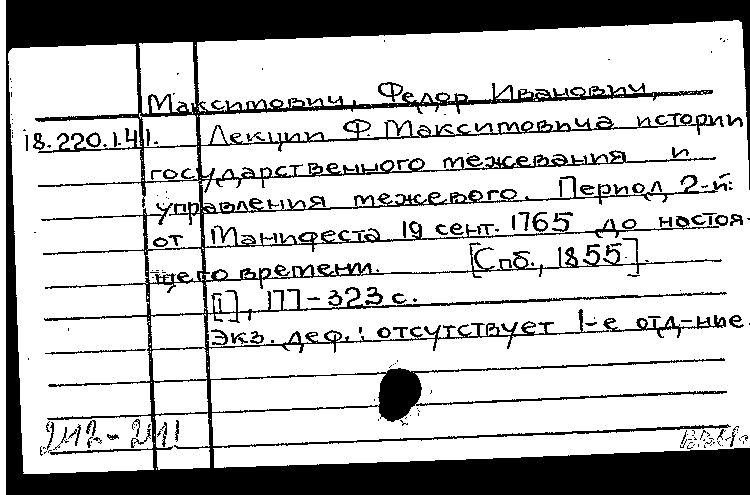 Максимович, Федор Иванович,
18.220.1.41. Лекции Ф. Максимовича истории
государственного межевания и
управления межевого. Период 2-й:
от Манифеста 19 сент. 1765 до настоя-
щего времени. [Спб., 1855].
[1], 177-323 с.
Экз. деф.: отсутствует 1-е отд-ние.